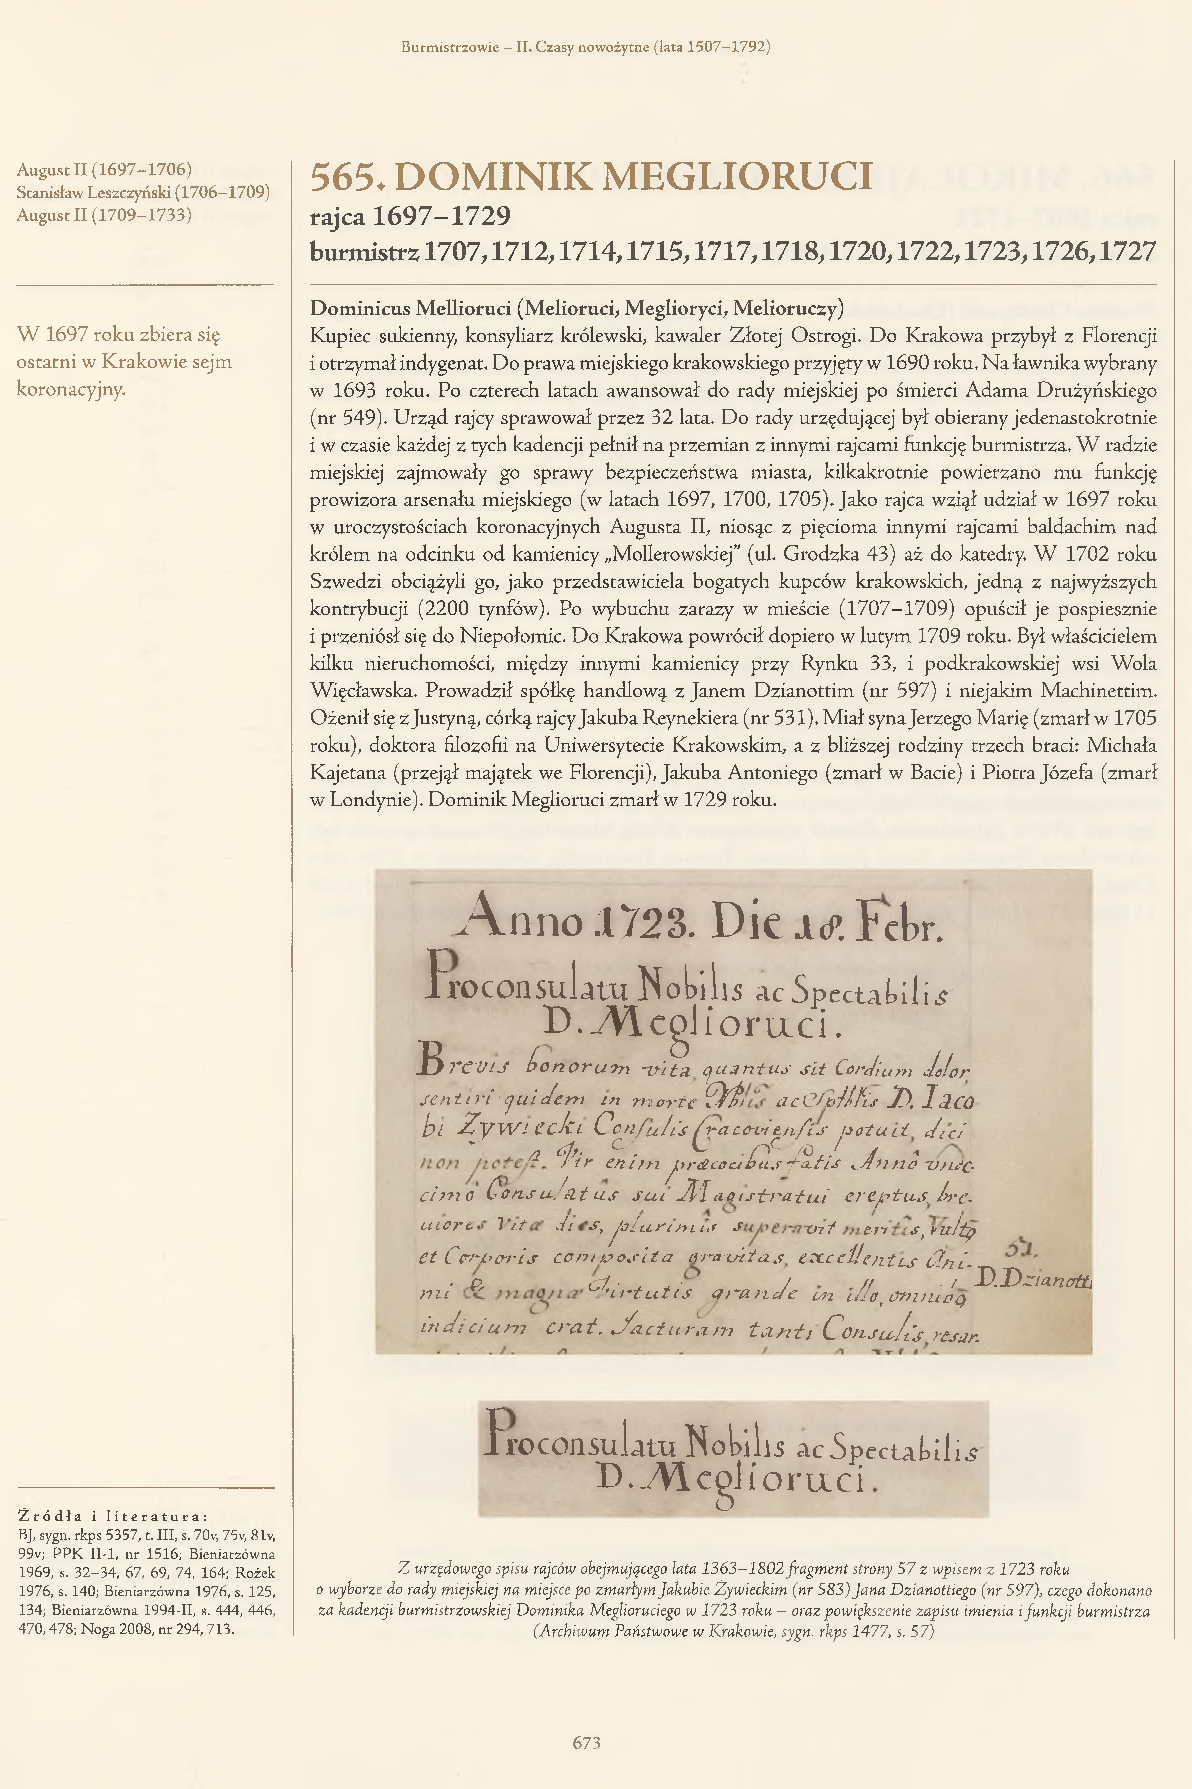 Burmistrzowie – II. Czasy nowożytne (lata 1507–1792)
August II (1697–1706)
Stanisław Leszczyński (1706–1709)
August II (1709–1733)
W 1697 roku zbiera się
ostatni w Krakowie sejm
koronacyjny.
565. DOMINIK MEGLIORUCI
rajca 1697–1729
burmistrz 1707, 1712, 1714, 1715, 1717, 1718, 1720, 1722, 1723, 1726, 1727
Dominicus Mellioruci (Melioruci, Meglioryci, Melioruczy)
Kupiec sukienny, konsyliarz królewski, kawaler Złotej Ostrogi. Do Krakowa przybył z Florencji
i otrzymał indygenat. Do prawa miejskiego krakowskiego przyjęty w 1690 roku. Na ławnika wybrany
w 1693 roku. Po czterech latach awansował do rady miejskiej po śmierci Adama Drużyńskiego
(nr 549). Urząd rajcy sprawował przez 32 lata. Do rady urzędującej był obierany jedenastokrotnie
i w czasie każdej z tych kadencji pełnił na przemian z innymi rajcami funkcję burmistrza. W radzie
miejskiej zajmowały go sprawy bezpieczeństwa miasta, kilkakrotnie powierzano mu funkcję
prowizora arsenału miejskiego (w latach 1697, 1700, 1705). Jako rajca wziął udział w 1697 roku
w uroczystościach koronacyjnych Augusta II, niosąc z pięcioma innymi rajcami baldachim nad
królem na odcinku od kamienicy „Mollerowskiej” (ul. Grodzka 43) aż do katedry. W 1702 roku
Szwedzi obciążyli go, jako przedstawiciela bogatych kupców krakowskich, jedną z najwyższych
kontrybucji (2200 tynfów). Po wybuchu zarazy w mieście (1707–1709) opuścił je pospiesznie
i przeniósł się do Niepołomic. Do Krakowa powrócił dopiero w lutym 1709 roku. Był właścicielem
kilku nieruchomości, między innymi kamienicy przy Rynku 33, i podkrakowskiej wsi Wola
Więcławska. Prowadził spółkę handlową z Janem Dzianottim (nr 597) i niejakim Machinettim.
Ożenił się z Justyną, córką rajcy Jakuba Reynekiera (nr 531). Miał syna Jerzego Marię (zmarł w 1705
roku), doktora filozofii na Uniwersytecie Krakowskim, a z bliższej rodziny trzech braci: Michała
Kajetana (przejął majątek we Florencji), Jakuba Antoniego (zmarł w Bacie) i Piotra Józefa (zmarł
w Londynie). Dominik Meglioruci zmarł w 1729 roku.
Anno .1723. Die .18. Febr.
Proconsulatu Nobilis ac Spectabilis
D. Meglioruci.
Brevis bonorum vita, quantus sit Cordium dolor,
sentiri quidem in morte D. Iaco
bi Zywiecki Consulis Cracoviensis potuit, dici
non potest. Vir enim præcocibus fatis Anno vndec-
cimo Consulatus sui Magistratui ereptus, bre-
uiores Vitæ dies, plurimis superavit meritis,
et Corporis composita gravitas, excellentis Ani-
mi & magnæ Virtutis grande in illo,
indicium erat. Jacturam tanti Consulis, resar-
57.
D. Dzianotti
Proconsulatu Nobilis ac Spectabilis
D. Meglioruci.
Źródła i literatura:
BJ, sygn. rkps 5357, t. III, s. 70v, 75v, 81v,
99v; PPK II-1, nr 1516; Bieniarzówna
1969, s. 32–34, 67, 69, 74, 164; Rożek
1976, s. 140; Bieniarzówna 1976, s. 125,
134; Bieniarzówna 1994-II, s. 444, 446,
470, 478; Noga 2008, nr 294, 713.
Z urzędowego spisu rajców obejmującego lata 1363–1802 fragment strony 57 z wpisem z 1723 roku
o wyborze do rady miejskiej na miejsce po zmarłym Jakubie Żywieckim (nr 583) Jana Dzianottiego (nr 597), czego dokonano
za kadencji burmistrzowskiej Dominika Meglioruciego w 1723 roku – oraz powiększenie zapisu imienia i funkcji burmistrza
(Archiwum Państwowe w Krakowie, sygn. rkps 1477, s. 57)
673